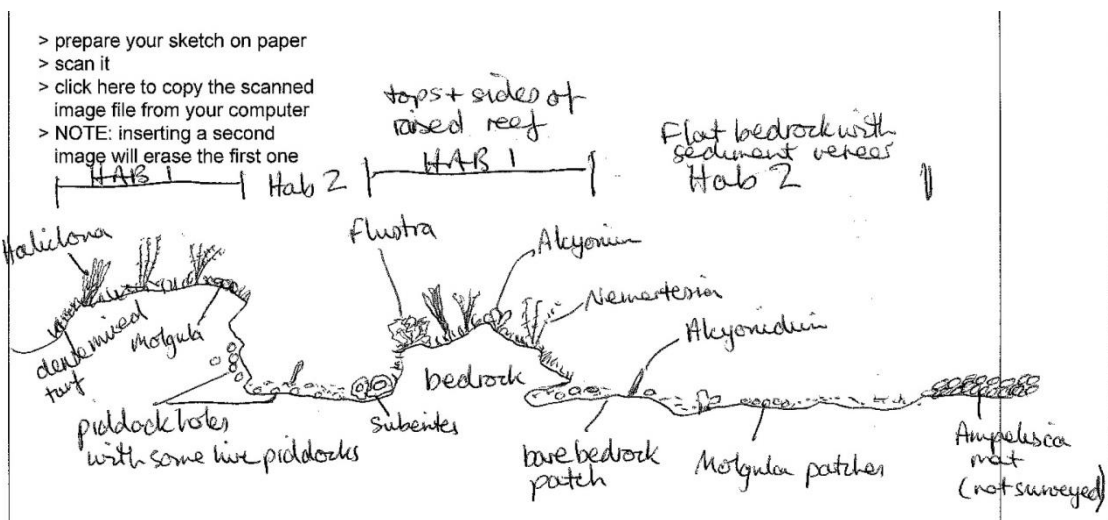 > prepare your sketch on paper
> scan it
> click here to copy the scanned
image file from your computer
> NOTE: inserting a second
image will erase the first one
HAB 1
Hab 2
tops + sides of
raised reef
HAB 1
Flat bedrock with
sediment veneer
Hab 2
Haliclona
Flustra
Alcyonium
Nemertesia
Alcyonidium
dense mixed
turf
Molgula
bedrock
piddock holes
with some live piddocks
Suberites
bare bedrock
patch
Molgula patches
Ampelisca
mat
(not surveyed)